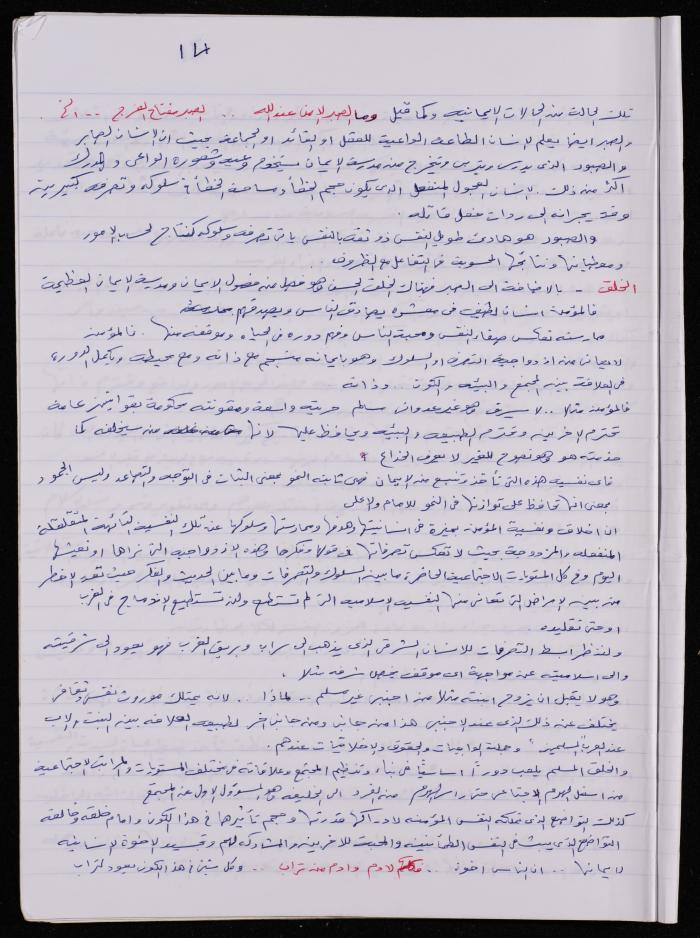 ١٨
تلك الحالة من الحالات الايمانية وكما قيل وما الصبر إلا من عند الله .. الصبر مفتاح الفرج .. الخ .
والصبر ايضا يعلم الإنسان الطاعة الواعية للعقل او القائد او الجماعة بحيث ان الانسان الصابر
والصبور الذي يدرس ويتربى ويتخرج من مدرسة الإيمان
اكثر من ذلك الإنسان العجول المنفعل الذي يكون حجم الخطأ ومساحة الخطأ في سلوكه وتصرفه كبير مرتبة
وقد يجرانه الى ردات فعل قاتلة .
والصبور هو هادئ طويل النفس ذو ثقة بالنفس يأتي تصرفه وسلوكه كنتاج لحساب الامور
ومعطياتها ونتائجها المحسوبة في التفاعل مع الظروف .
الخلق - بالاضافة الى الصبر فهناك الخلق الحسن وهو فصل من فصول الايمان ومدرسة الإيمان العظيمة
فالمؤمن انسان لطيف في معشره يصادق الناس ويصدقهم
ممارسته تعكس صفاء النفس ومحبة الناس وفهم دوره في الحياة وموقفه منها . فالمؤمن
لا يعاني من ازدواجية التصرف او السلوك وهو بايمانه منسجم مع ذاته ومع محيطه ويكمل الدورة
في العلاقة بين المجتمع والبيئة والكون .. وذاته
فالمؤمن مثلا .. لا يسرق وهو غير عدواني مسلم حريته واسعة ومقوننة محكومة بقوانين عامة
تحترم الآخرين وتحترم الطبيعة والبيئة ويحافظ عليها لأنها من سيخلفه كما
خدمته هو وهو نصوح للغير لا يعرف الخداع
فأي نفسية هذه التي تأخذ وتنبع من الإيمان فهي ثابتة النمو بمعنى الثبات في التوجه والتصاعد وليس الجمود
بمعنى انها تحافظ على توازنها في النمو للامام والاعلى
ان اخلاق ونفسية المؤمن مميزة في انسانيتها وهدفها وممارستها وسلوكها عن تلك النفسية التائهة المتقلقلة
المنفعلة والمزدوجة بحيث لا تعكس تصرفاتها في قولها وفكرها وهذه الازدواجية التي نراها او نعيشها
اليوم وفي كل المستويات الاجتماعية الحاضرة ما بين السلوك والتصرفات وما بين الحديث والفكر حيث تعد الاخطر
من بين الأمراض التي تعاني منها النفسية الإسلامية التي لم تستطع ولن تستطيع الاندماج في الغرب
او حتى تقليده .
ولننظر ابسط التصرفات للانسان الشرقي الذي يذهب الى سراب وبريق الغرب فهو يعود الى شرقيته
والى اسلاميته عند مواجهة اي موقف يخص شرفه مثلا .
وهو لا يقبل ان يزوج ابنته مثلا من اجنبي غير مسلم .. لماذا ... لأنه يمتلك موروث نفسي وثقافي
يختلف عن ذلك الذي عند الاجنبي هذا من جانب ومن جانب اخر لطبيعة العلاقة بين البنت والاب
عند العرب المسلمين وجملة الواجبات والحقوق والاخلاقيات عندهم .
والخلق المسلم يلعب دوراً اساسياً في بناء وتنظيم المجتمع وعلاقاته في مختلف المستويات والمراتب الاجتماعية
من اسفل الهرم الاجتماعي حتى رأس الهرم من الفرد الى الخليفة وهو المسؤول الاول عن المجتمع
كذلك التواضع الذي تملكه النفس المؤمنة لادراكها قدرتها وحجم تأثيرها في هذا الكون وامام خلقه وخالقه
التواضع الذي يبث في النفس الطمأنينة والمحبة للآخرين والمشاركة لهم وتجسيد الاخوة الانسانية
لايمانها .. ان الناس اخوة .. كلكم لآدم وادم من تراب .. وكل شيئ في هذا الكون يعود لتراب